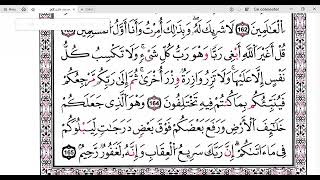 الْعَالَمِينَ 162 لَا شَرِيكَ لَهُ وَبِذَٰلِكَ أُمِرْتُ وَأَنَا أَوَّلُ الْمُسْلِمِينَ
قُلْ أَغَيْرَ اللَّهِ أَبْغِي رَبًّا وَهُوَ رَبُّ كُلِّ شَيْءٍ وَلَا تَكْسِبُ كُلُّ
نَفْسٍ إِلَّا عَلَيْهَا وَلَا تَزِرُ وَازِرَةٌ وِزْرَ أُخْرَىٰ ثُمَّ إِلَىٰ رَبِّكُم مَّرْجِعُكُمْ
فَيُنَبِّئُكُم بِمَا كُنتُمْ فِيهِ تَخْتَلِفُونَ 164 وَهُوَ الَّذِي جَعَلَكُمْ
خَلَائِفَ الْأَرْضِ وَرَفَعَ بَعْضَكُمْ فَوْقَ بَعْضٍ دَرَجَاتٍ لِّيَبْلُوَكُمْ
فِي مَا آتَاكُمْ إِنَّ رَبَّكَ سَرِيعُ الْعِقَابِ وَإِنَّهُ لَغَفُورٌ رَّحِيمٌ 165